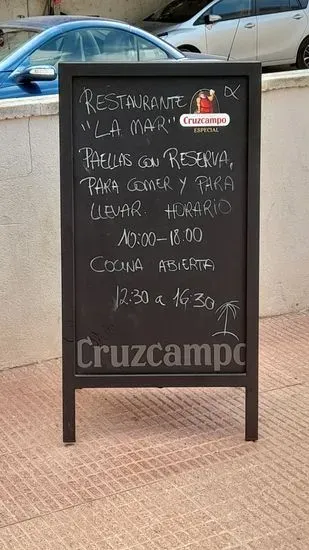 RESTAURANTE
"LA MAR"
Cruzcampo
ESPECIAL
PAELLAS CON RESERVA,
PARA COMER Y PARA
LLEVAR. HORARIO
10:00-18:00
COCINA ABIERTA
12:30 a 16:30
Cruzcampo